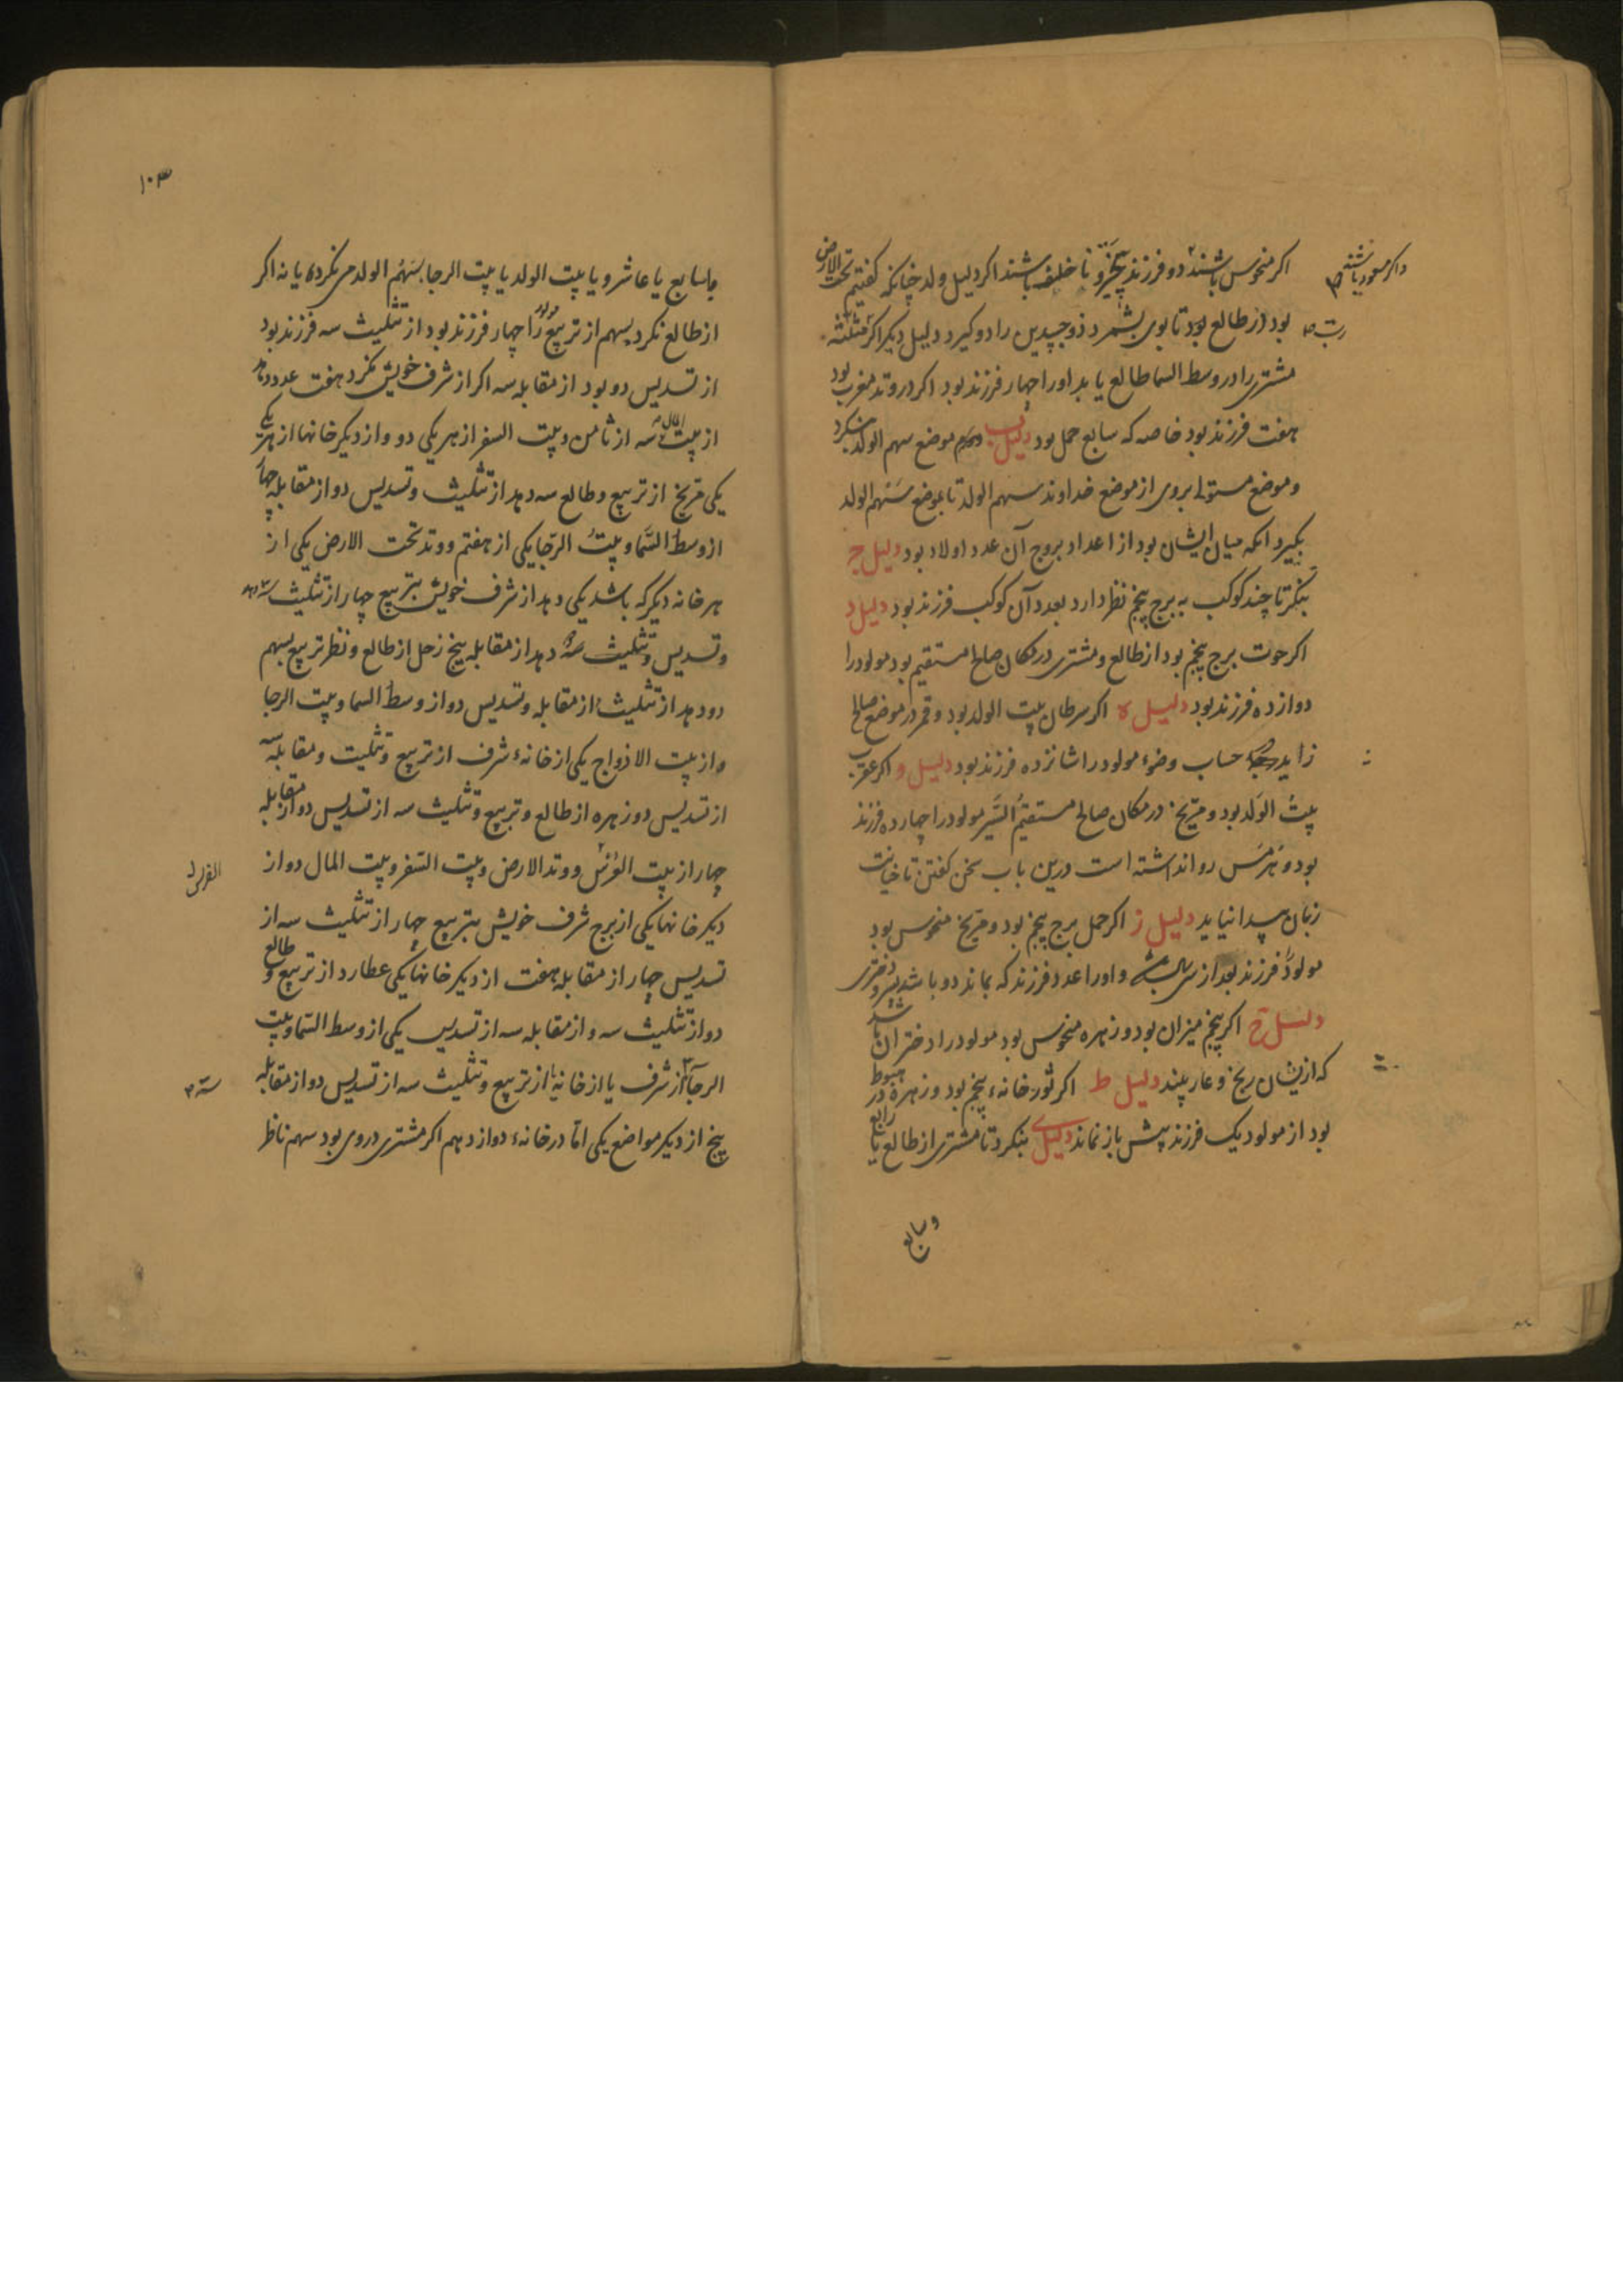 اکر منحوس باشند دو فرزند بی‌خیر و نا خلف باشند اکر دلیل ولد چنانکه کفتیم تحت الارض
واکر مسعود باشند
بود از طالع بود تا بوی بشمرد ذو جسدین را دو کیرد دلیل دیکر اکر مثلثه
مشتری را در وسط السما طالع یابد او را چهار فرزند بود اکر در وتد مغرب بود
هفت فرزند بود خاصه که سابع حمل بود دلیل ب موضع سهم الولد بنکرد
و موضع مستولی بروی از موضع خداوند سهم الولد تا بموضع سهم الولد
بکیرد انکه میان ایشان بود از اعداد بروج آن عدد اولاد بود دلیل ج
بنکر تا چند کوکب به برج پنجم نظر دارد بعدد آن کوکب فرزند بود دلیل د
اکر حوت برج پنجم بود از طالع و مشتری در مکان صالح مستقیم بود مولود را
دوازده فرزند بود دلیل ه اکر سرطان بیت الولد بود و قمر در موضع صالح
زاید حساب وضوء مولود را شانزده فرزند بود دلیل و اکر عقرب
بیت الولد بود و مریخ در مکان صالح مستقیم السیر مولود را چهارده فرزند
بود و هرمس روا نداشته است درین باب سخن کفتن تا خیانت
زبان پیدا نیاید دلیل ز اکر حمل برج پنجم بود و مریخ منحوس بود
مولود فرزند بعد از و او را عدد فرزند که بماند دو باشد پسر و دختری
دلیل ح اکر پنجم میزان بود و زهره منحوس بود مولود را دختران باشد
که ازیشان رنج و عار بیند دلیل ط اکر ثور خانهء پنجم بود و زهره در هبوط
بود از مولود یک فرزند بیش باز نماند دلیل ی بنکرد تا مشتری از طالع یا رابع
و سابع
۱۰۳
یا سابع یا عاشر و یا بیت الولد یا بیت الرجا بسهم الولد می نکرد یا نه اکر
از طالع نکرد بسهم از تربیع مولود را چهار فرزند بود از تثلیث سه فرزند بود
از تسدیس دو بود از مقابله سه اکر از شرف خویش نکرد هفت عدد دهد
از بیت المال سه از ثامن و بیت السفر از هر یکی دو و از دیکر خانها از هر یکی
یکی مریخ از تربیع و طالع سه دهد از تثلیث و تسدیس دو از مقابله چهار
از وسط السما و بیت الرجا یکی از هفتم و وتد تحت الارض یکی از
هر خانه دیکر که باشد یکی دهد از شرف خویش بتربیع چهار از تثلیث سه دهد
و تسدیس و تثلیث سه دهد از مقابله پنج زحل از طالع و نظر تربیع بسهم
دو دهد از تثلیث از مقابله و تسدیس دو از وسط السما و بیت الرجا
و از بیت الازواج یکی از خانهء شرف از تربیع و تثلیث و مقابله سه
از تسدیس دو زهره از طالع و تربیع و تثلیث سه از تسدیس دو از مقابله
چهار از بیت العرس و وتد الارض و بیت السفر و بیت المال دو از
دیکر خانها یکی از برج شرف خویش بتربیع چهار از تثلیث سه از
تسدیس چهار از مقابله هفت از دیکر خانها یکی عطارد از تربیع و طالع
دو از تثلیث سه و از مقابله سه از تسدیس یکی از وسط السما و بیت
الرجا از شرف یا از خانه از تربیع و تثلیث سه از تسدیس دو از مقابله
پنج از دیکر مواضع یکی اما در خانهء دوازدهم اکر مشتری دروی بود سهم ناظر